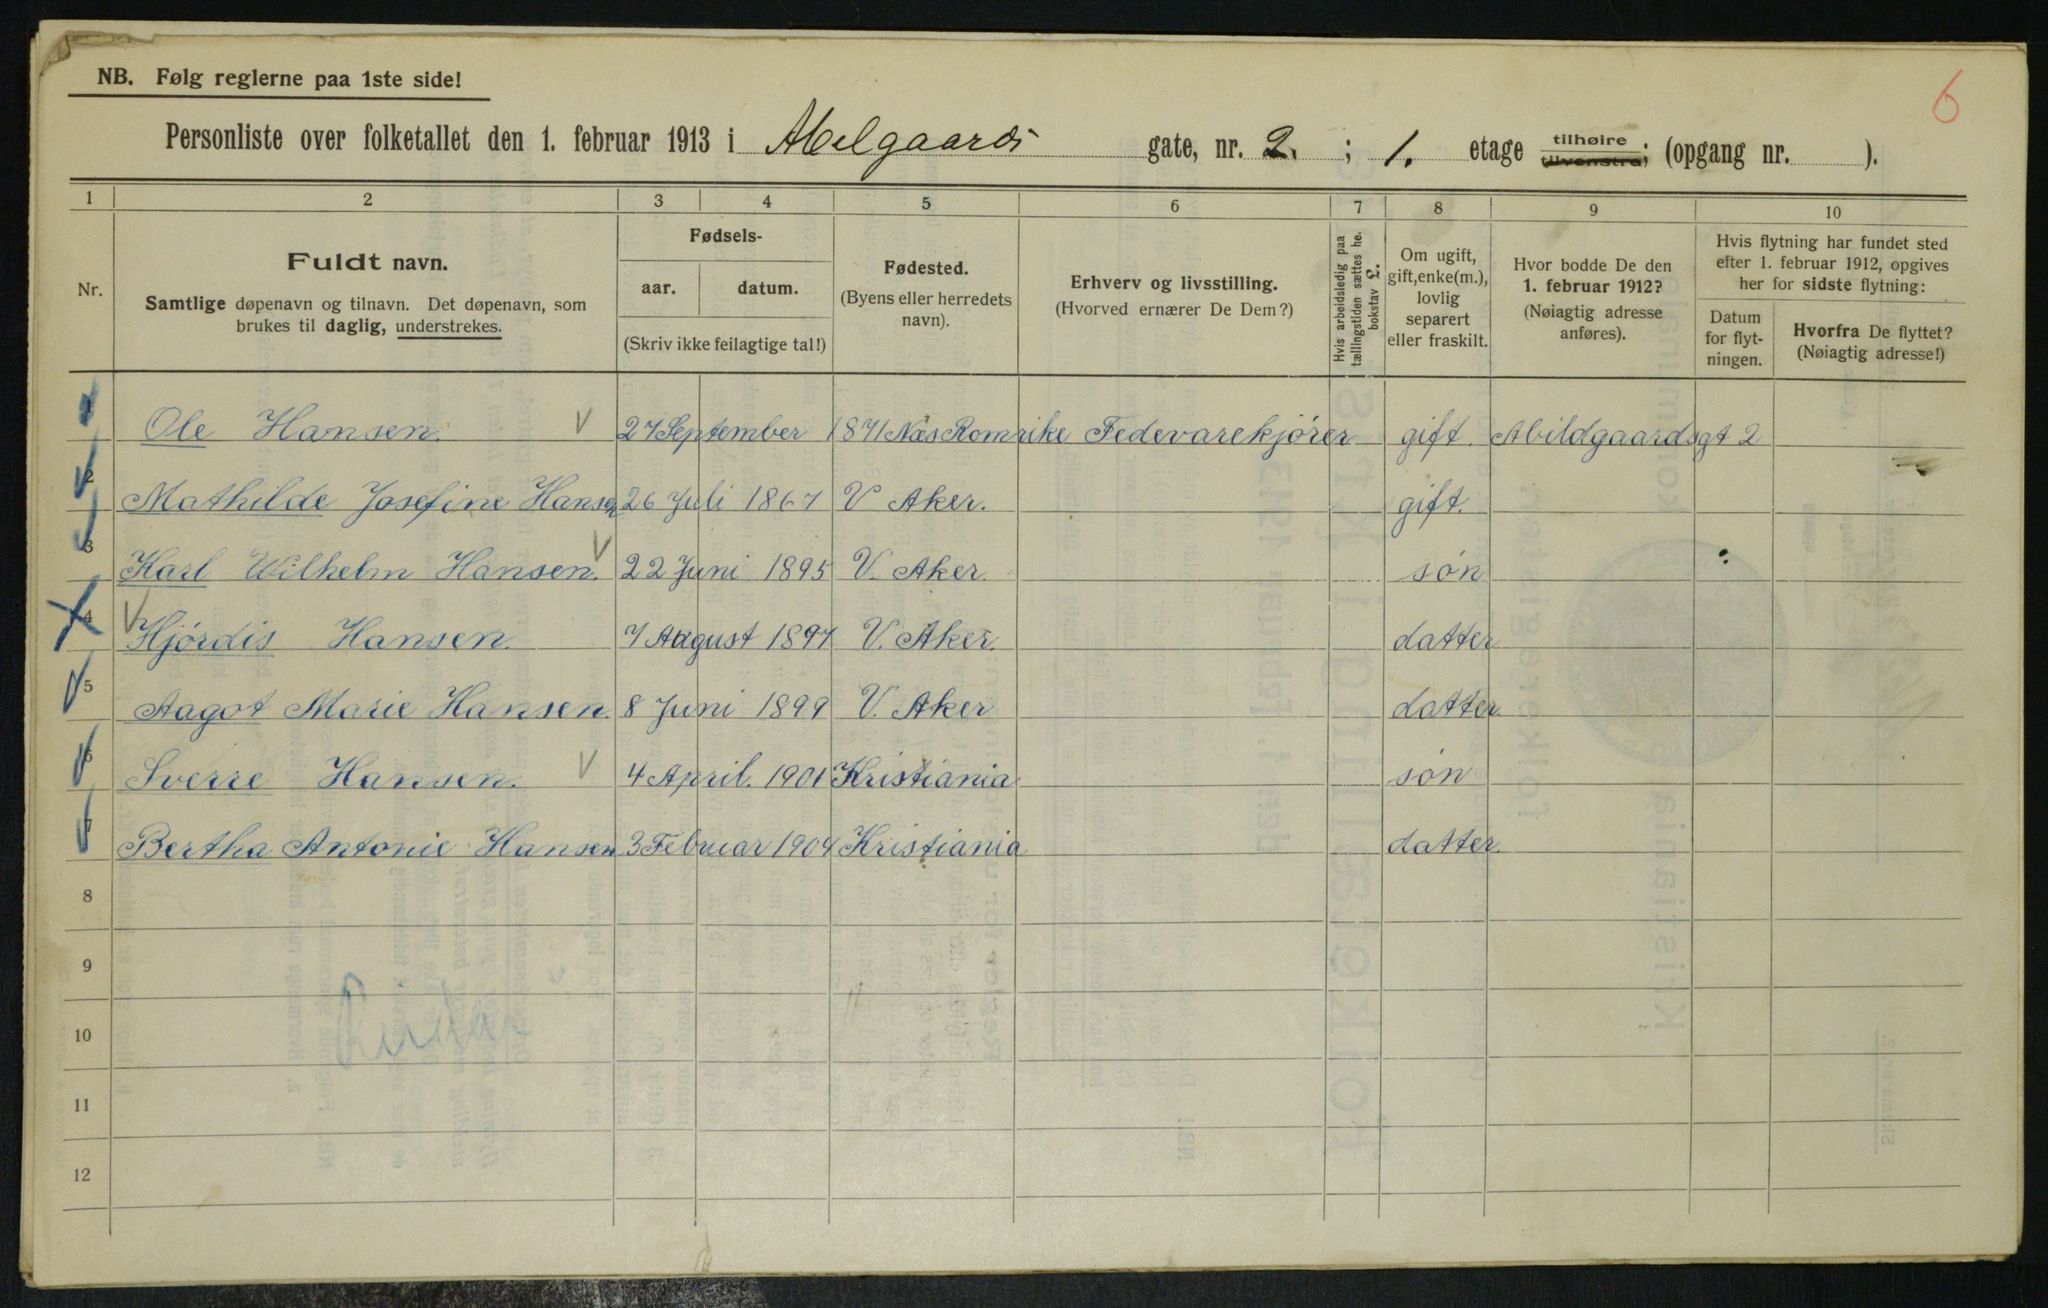 NB. Følg reglerne paa 1ste side!
6
Personliste over folketallet den 1. februar 1913 i Abelgaards gate, nr. 2. ; 1. etage tilhøire tilvenstre; (opgang nr. ).
1 2 3 4 5 6 7 8 9 10
Nr.
Fuldt navn.
Samtlige døpenavn og tilnavn. Det døpenavn, som
brukes til daglig, understrekes.
Fødsels-
aar. datum.
(Skriv ikke feilagtige tal!)
Fødested.
(Byens eller herredets
navn).
Erhverv og livsstilling.
(Hvorved ernærer De Dem?)
Hvis arbeidsledig paa
tællingstiden sættes he.
bokstav L.
Om ugift,
gift, enke(m.),
lovlig
separert
eller fraskilt.
Hvor bodde De den
1. februar 1912?
(Nøiagtig adresse
anføres).
Hvis flytning har fundet sted
efter 1. februar 1912, opgives
her for sidste flytning:
Datum
for flyt-
ningen.
Hvorfra De flyttet?
(Nøiagtig adresse!)
1 Ole Hansen. 27 September 1871 Næs Romrike Fedevarekjører gift. Abildgaardsgt 2
2 Mathilde Josefine Hansen 26 Juli 1867 V Aker. gift.
3 Karl Wilhelm Hansen. 22 Juni 1895 V. Aker. søn
4 Hjørdis Hansen. 7 August 1897 V. Aker. datter
5 Aagot Marie Hansen. 8 Juni 1899 V. Aker datter.
6 Sverre Hansen. 4 April. 1901 Kristiania søn
7 Bertha Antonie Hansen 3 Februar 1904 Kristiania datter.
8
9
10
11
12